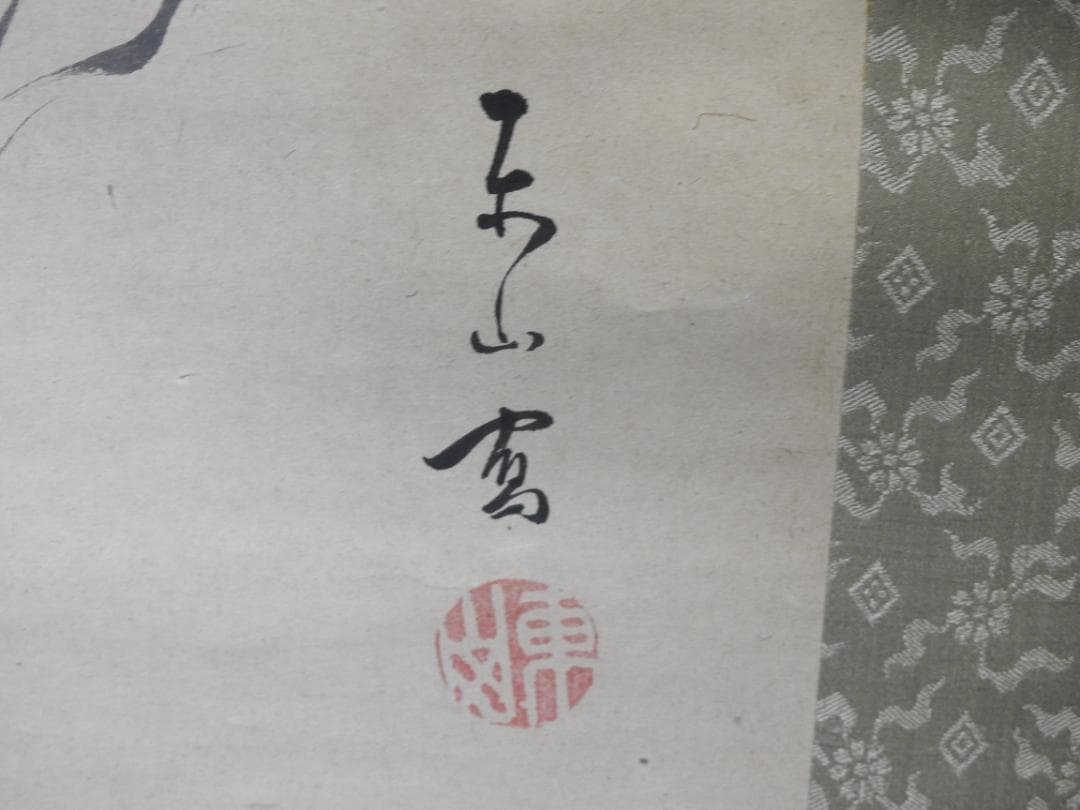 東山寫